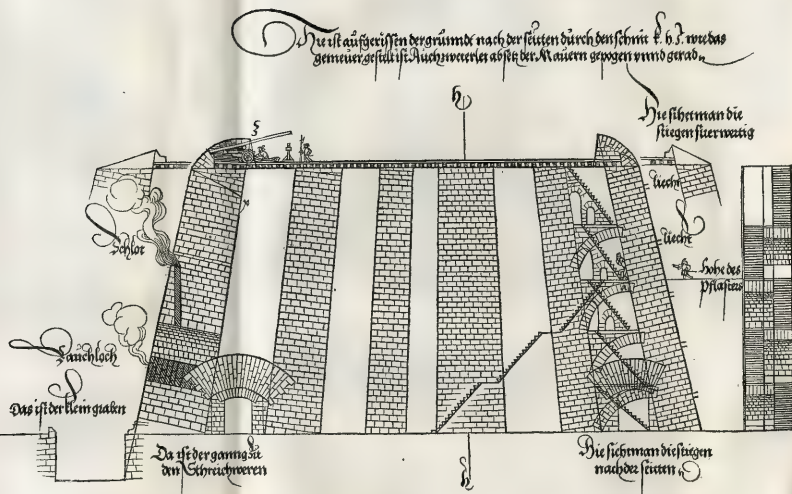 Hie ist aufgerissen der grunnde nach der seiitten durch den schnit k. h. J. wie das
gemeuer gestelt ist Auch wieuerlei absetz der Mauern gezogen vnnd gerad
h
Hie sihet man die
stiegen fuerwertig
liecht
Schlot
liecht
hohe des
pflasters
Rauchloch
Das ist der klein graben
Da ist der ganng zu
den Schreichweren
h
Hie sicht man die stiegen
nach der seitten